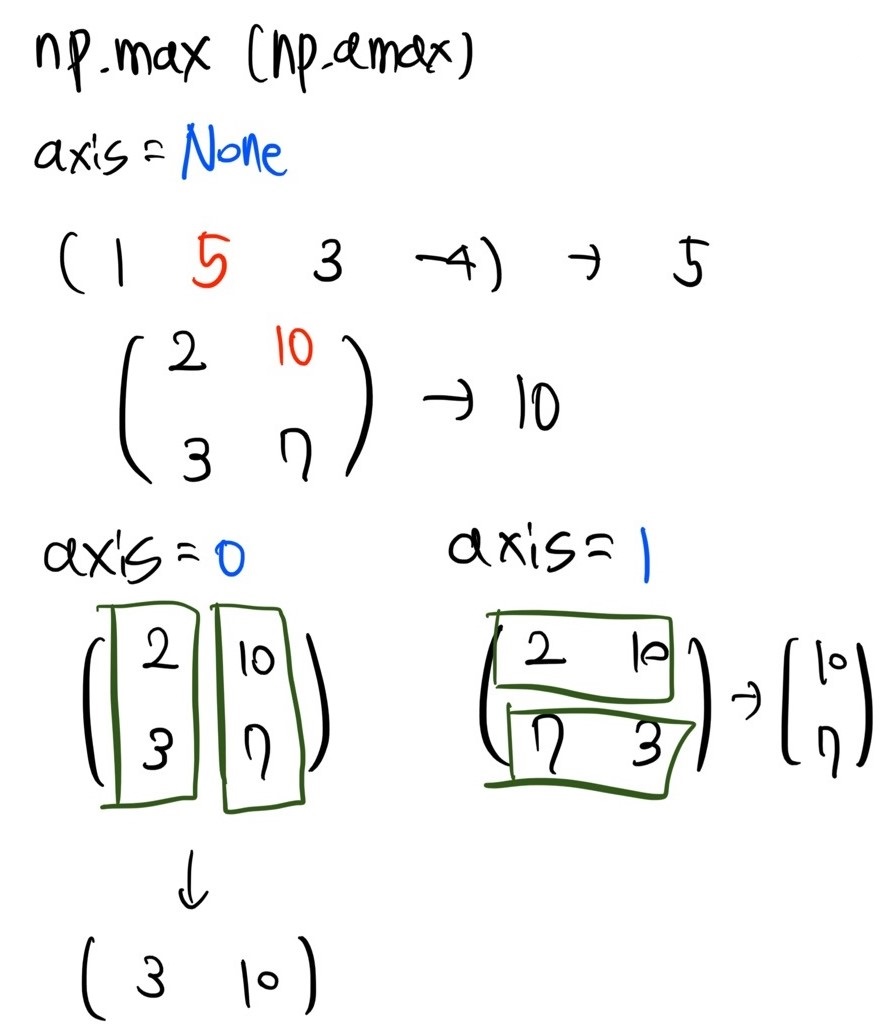 np.max (np.amax)
axis = None
( 1 5 3 -4) → 5
( 2 10
3 7 ) → 10
axis = 0
( 2 10
3 7 )
↓
( 3 10 )
axis = 1
( 2 10
7 3 ) → ( 10
7 )